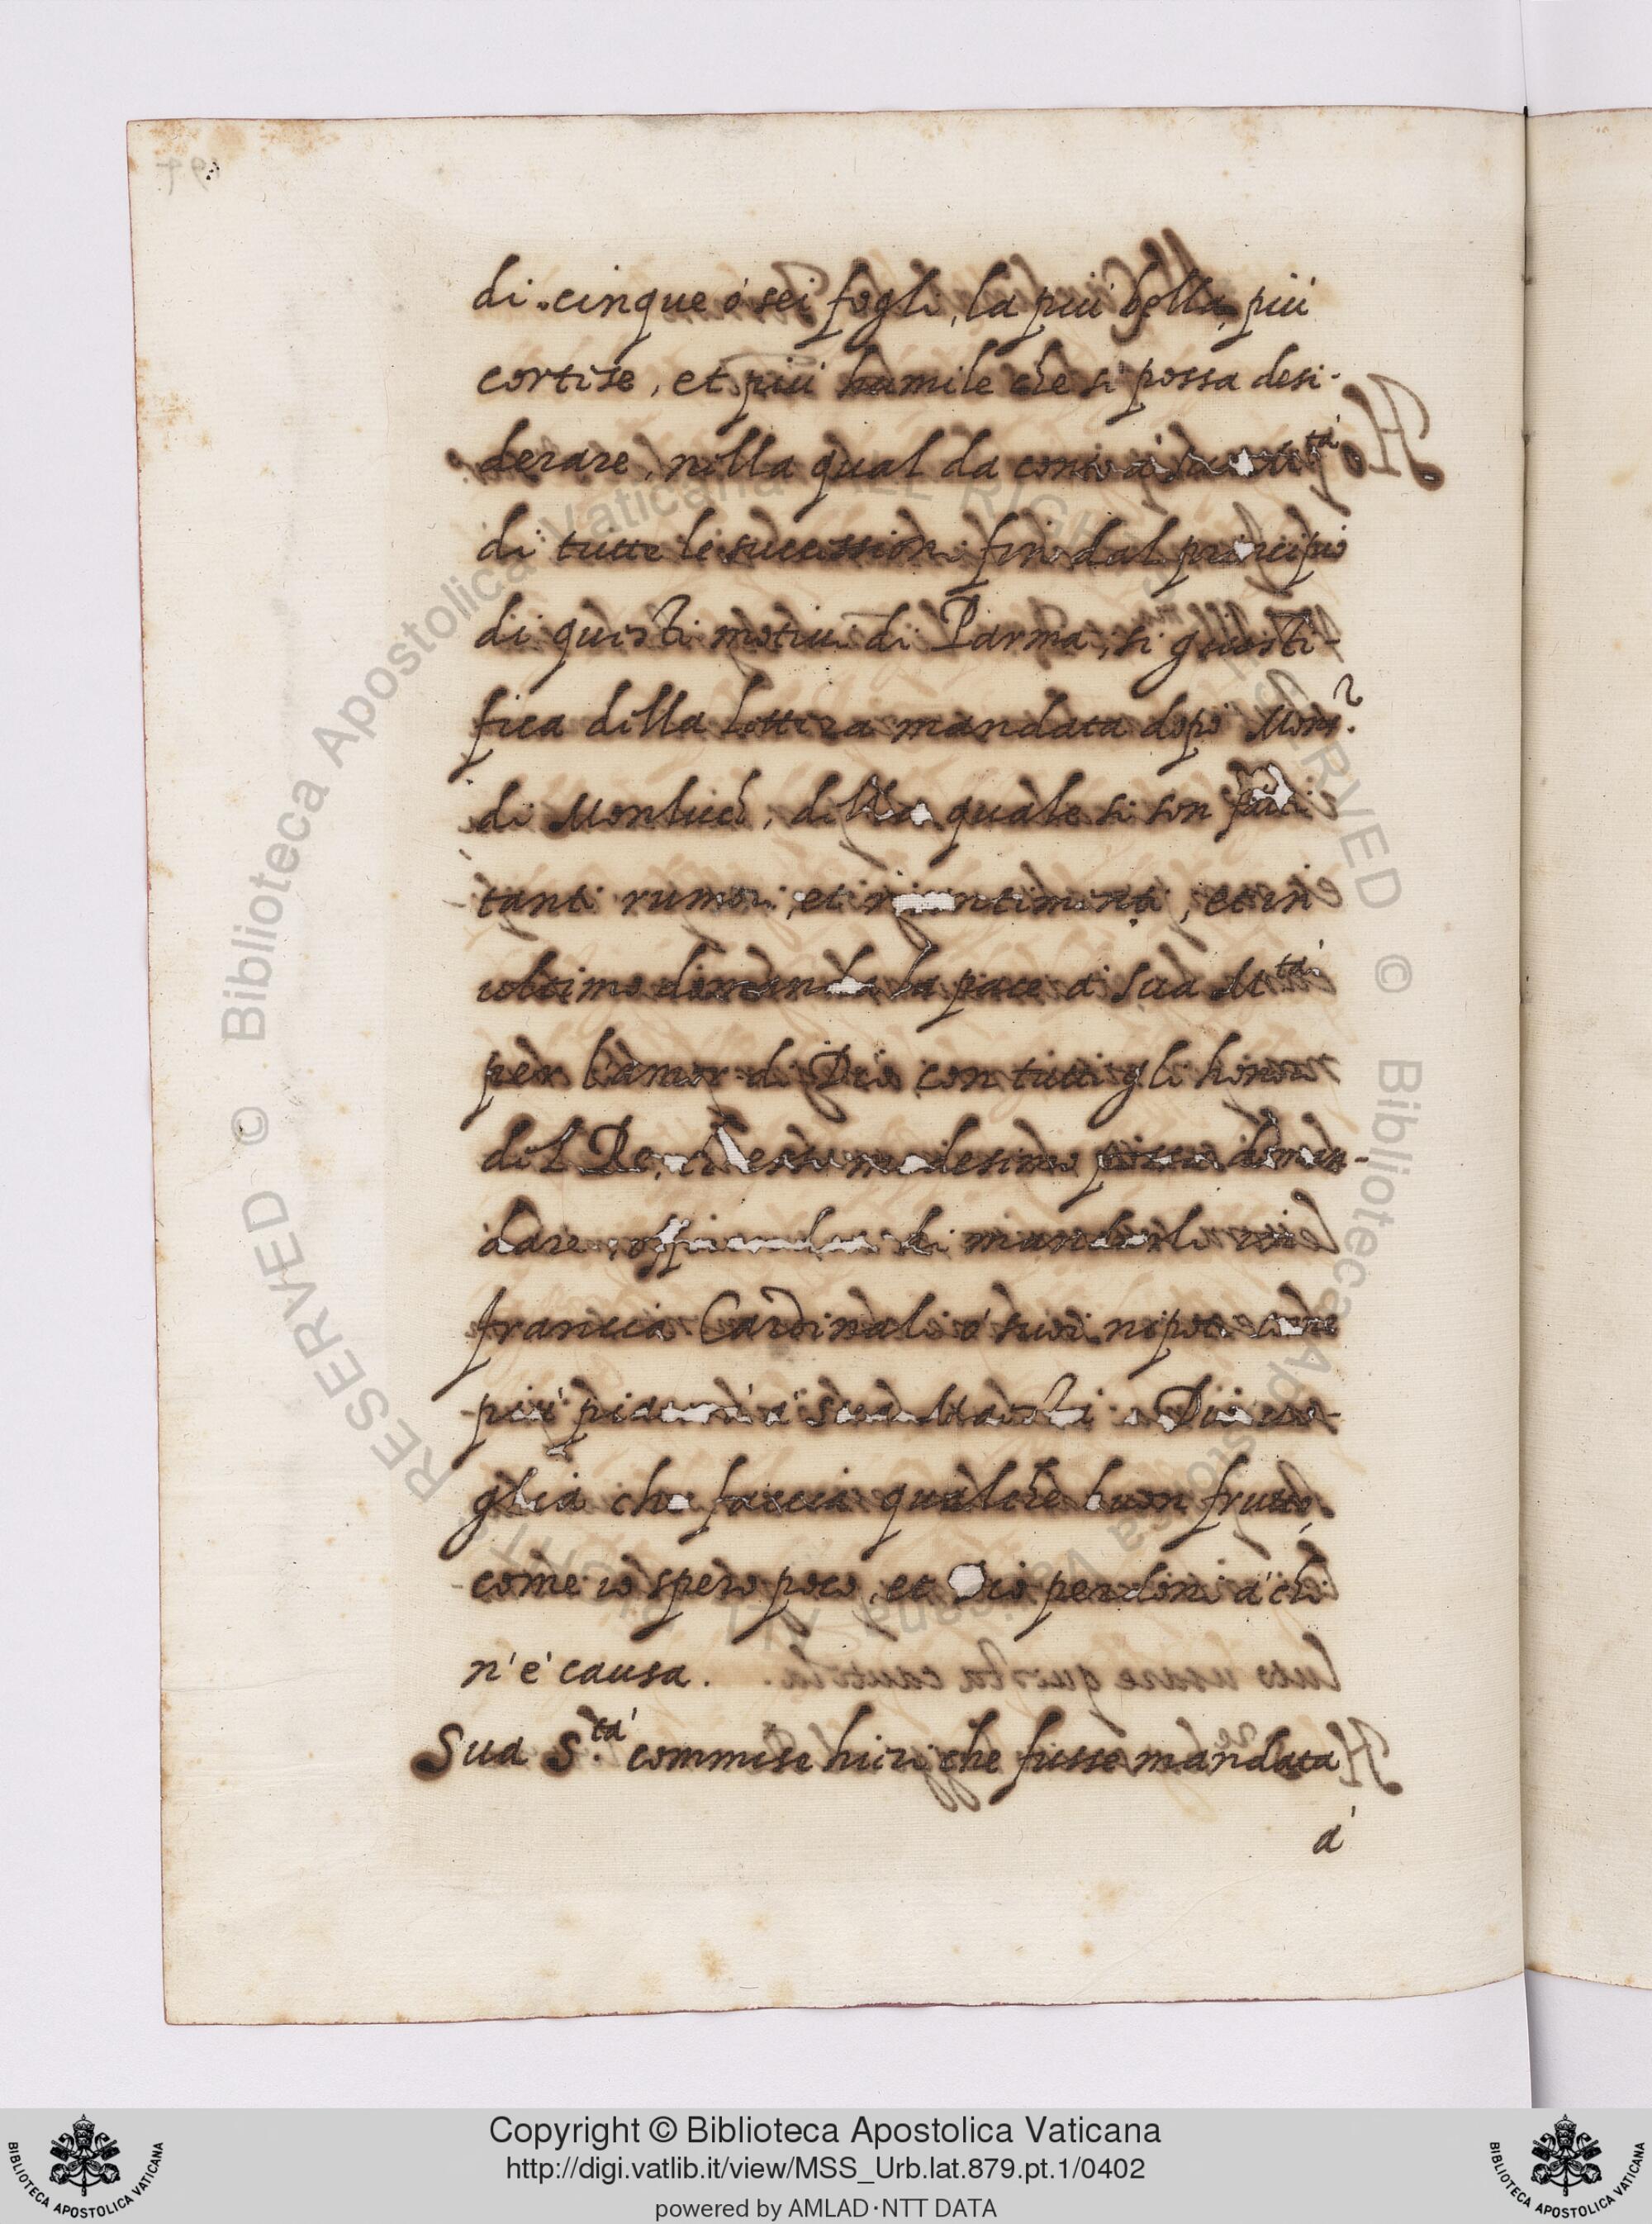 di cinque ó sei fogli, la più bella, più
cortese, et più humile che si possa desi-
derare, nella qual da conto á sua M.tá
di tutte le successioni fin dal principio
di questi motivi di Parma, si giusti-
fica della lettera mandata dopo Mons.r
di Monluch, della quale si son fatti
tanti rumori, et risentimenti, et in
ultimo dimanda la pace á Sua M.tá
per l'amor di Dio con tutti gli honori
del Re, ch'esso medesimo possa diman-
dare, di mandarli in
francia Cardinali ó suoi nipoti come
più piacerà á sua Maestà. Dio vo-
glia che faccia qualche buon frutto,
come io spero poco, et Dio perdoni á chi
n'è causa.
Sua S.tá commise hieri che fusse mandata
á
Copyright © Biblioteca Apostolica Vaticana
http://digi.vatlib.it/view/MSS_Urb.lat.879.pt.1/0402
powered by AMLAD·NTT DATA
BIBLIOTECA APOSTOLICA VATICANA
BIBLIOTECA APOSTOLICA VATICANA